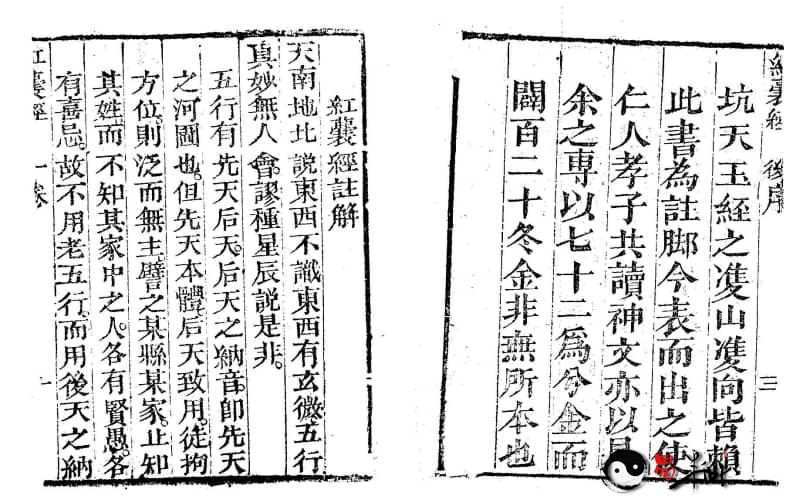 紅囊經 後序 三
坑天玉經之雙山雙向皆賴
此書為註脚今表而出之使
仁人孝子共讀神文亦以見
余之專以七十二為分金而
闢百二十冬金非無所本也
紅囊經註解
天南地北說東西不識東西有玄微五行
真妙無人會謬種星辰說是非
五行有先天后天后天之納音即先天
之河圖也但先天本體后天致用徒拘
方位則泛而無主譬之某縣某家止知
其姓而不知其家中之人各有賢愚各
有喜忌故不用老五行而用後天之納
紅囊經 一卷 一